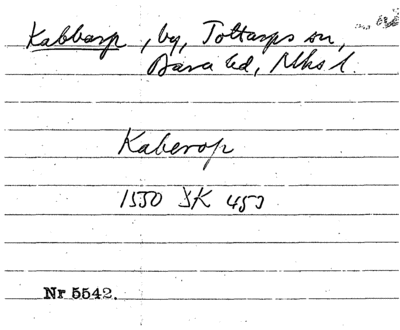 Kabbarp, by, Tottarps sn,
Bara hd, Mlhs l.
Kaberop
1550 JK 453
Nr 5542.